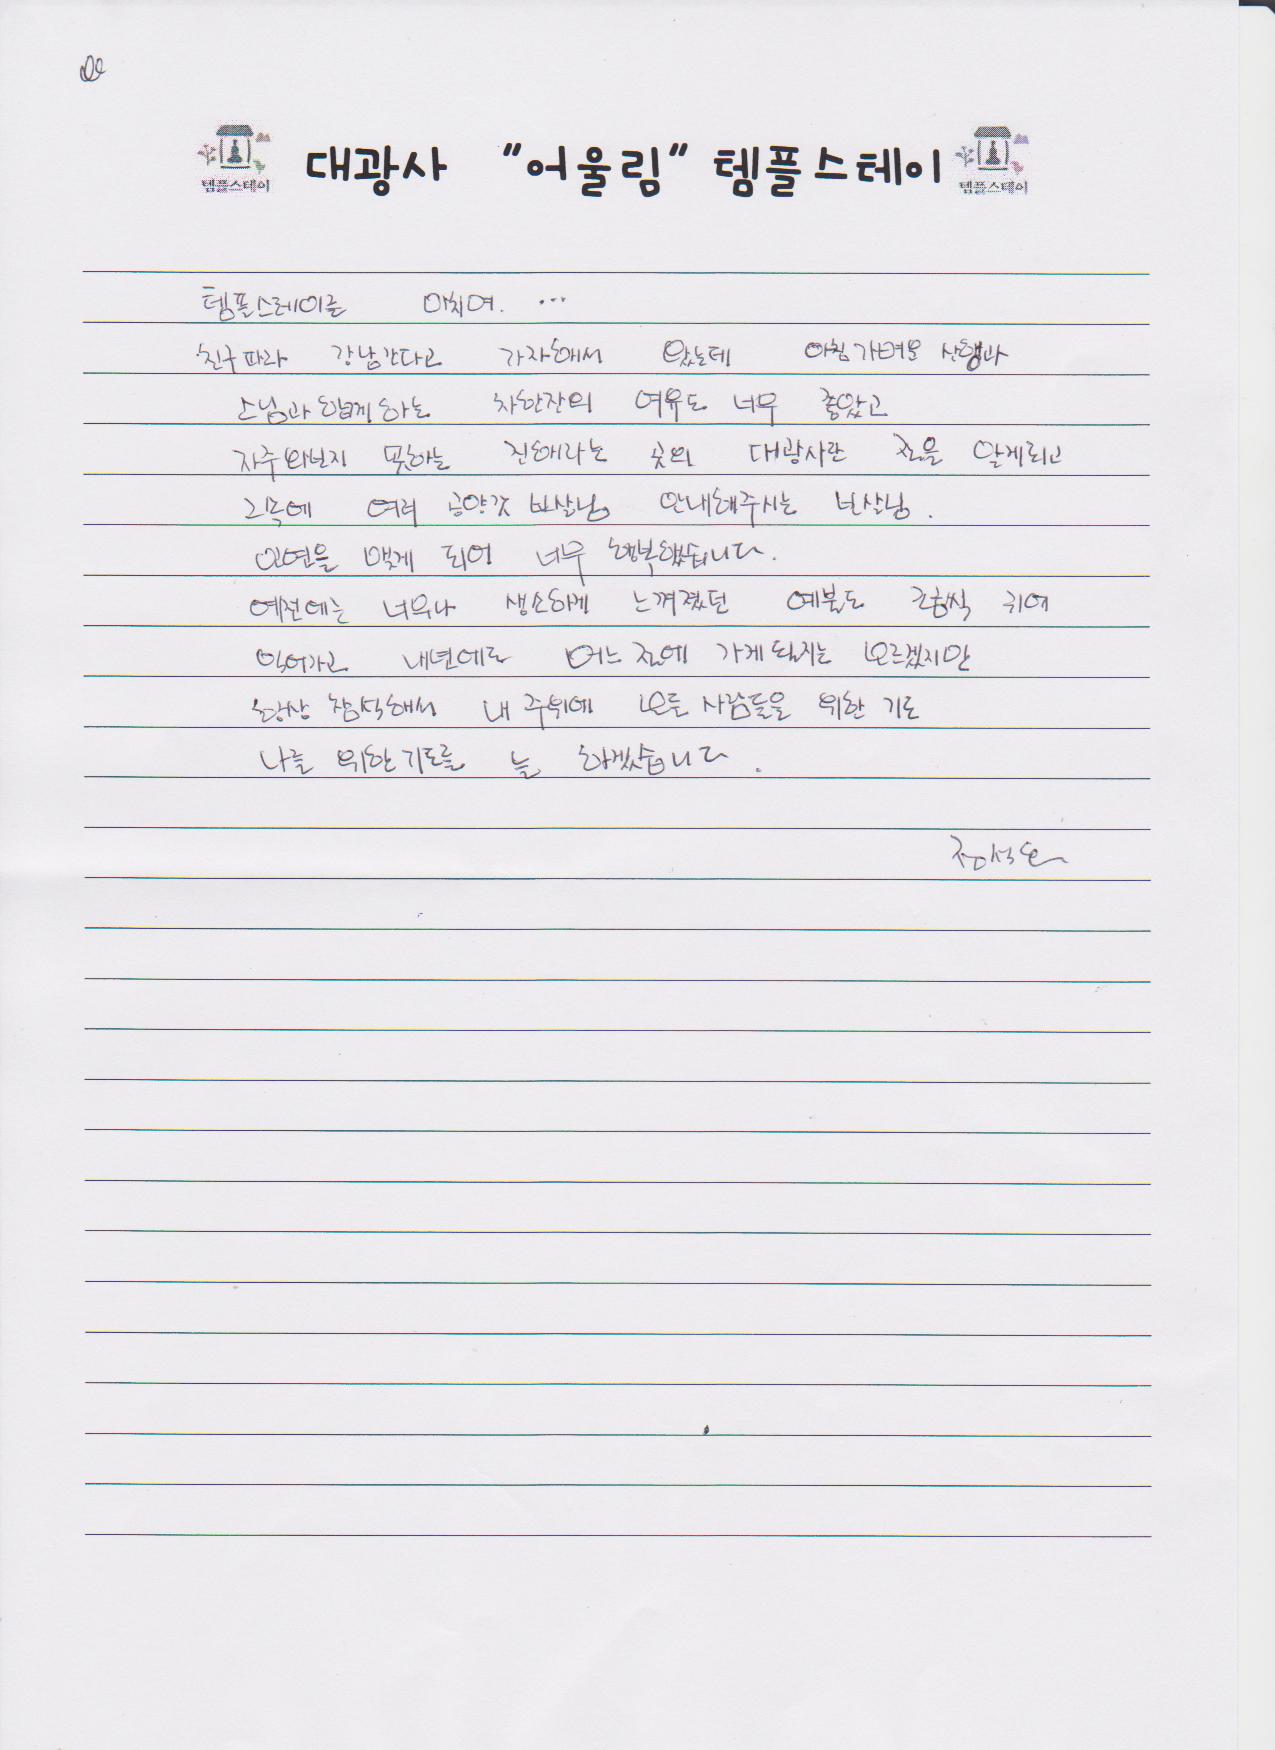 대광사 "어울림" 템플스테이
템플스테이
템플스테이
템플스테이를 마치며. ...
친구따라 강남간다고 가자해서 왔는데 아침 가벼운 산행과
스님과 함께하는 차한잔의 여유도 너무 좋았고
자주 와보지 못하는 진해라는 곳의 대광사란 절을 알게되고
그속에 여러 공양간 보살님 안내해주시는 보살님.
인연을 맺게 되어 너무 행복했습니다.
예전에는 너무나 생소하게 느껴졌던 예불도 조금씩 귀에
익어가고 내년에도 어느 절에 가게 될지는 모르겠지만
항상 참석해서 내 주위에 모든 사람들을 위한 기도
나를 위한기도를 늘 하겠습니다.